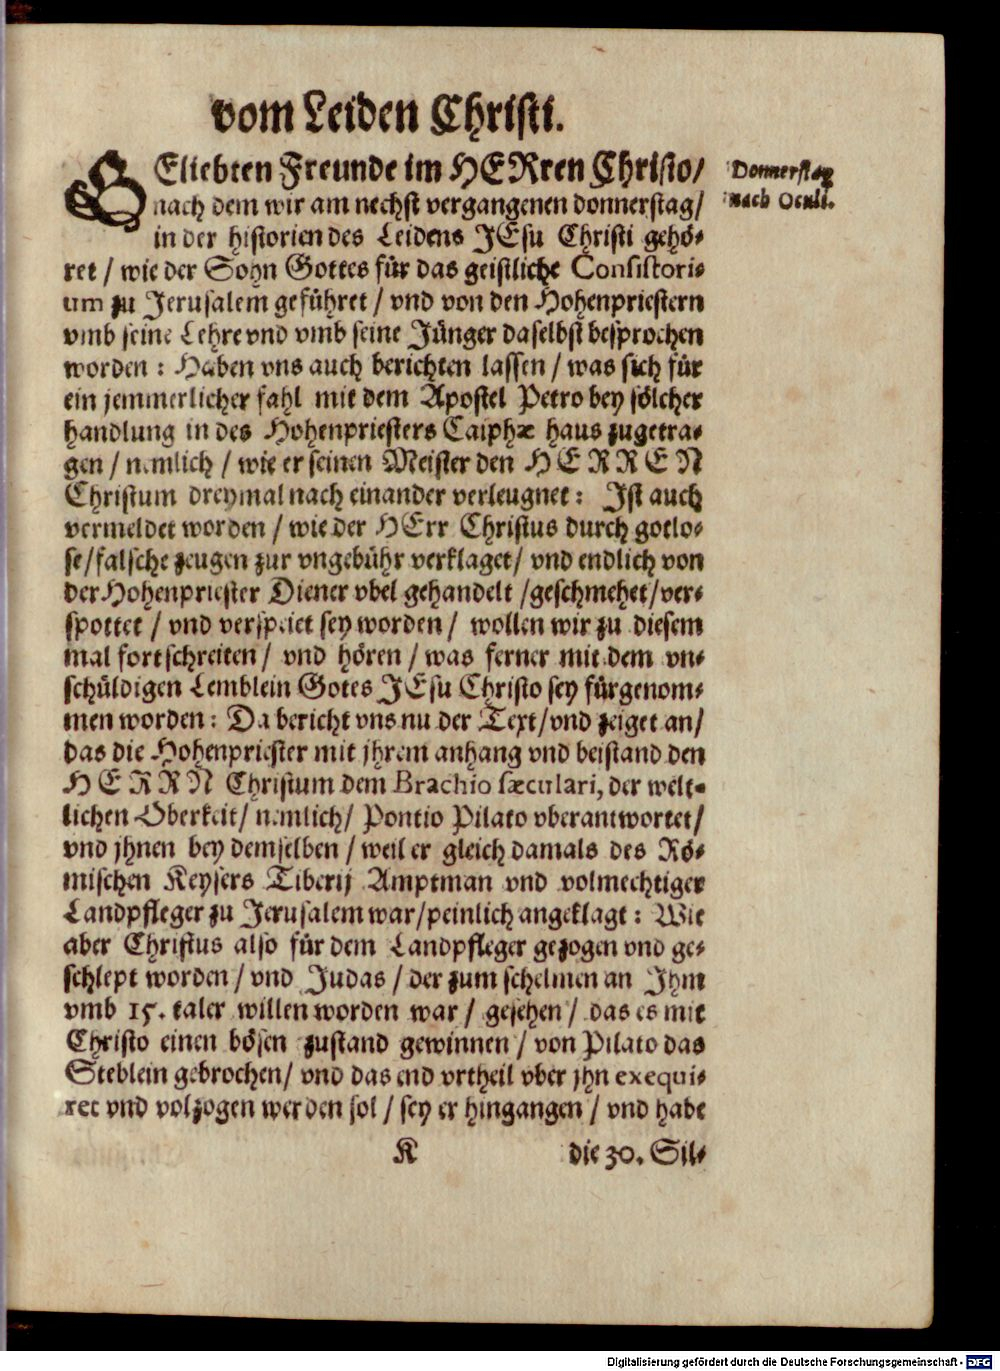 vom Leiden Christi.
GEliebten Freunde im HERren Christo/
nach dem wir am nechst vergangenen donnerstag/
in der historien des Leidens JEsu Christi gehö-
ret / wie der Sohn Gottes für das geistliche Consistori-
um zu Jerusalem geführet / vnd von den Hohenpriestern
vmb seine Lehre vnd vmb seine Jünger daselbst besprochen
worden : Haben vns auch berichten lassen / was sich für
ein jemmerlicher fahl mit dem Apostel Petro bey sölcher
handlung in des Hohenpriesters Caiphæ haus zugetra-
gen / nemlich / wie er seinen Meister den HERREN
Christum dreymal nach einander verleugnet : Jst auch
vermeldet worden / wie der HErr Christus durch gotlo-
se/falsche zeugen zur vngebühr verklaget/ vnd endlich von
der Hohenpriester Diener vbel gehandelt /geschmehet/ver-
spottet / vnd verspeiet sey worden / wollen wir zu diesem
mal fortschreiten / vnd hören / was ferner mit dem vn-
schüldigen Lemblein Gotes JEsu Christo sey fürgenom-
men worden : Da bericht vns nu der Text/vnd zeiget an/
das die Hohenpriester mit jhrem anhang vnd beistand den
HERRN Christum dem Brachio sæculari, der welt-
lichen Oberkeit/ nemlich/ Pontio Pilato vberantwortet/
vnd jhnen bey demselben / weil er gleich damals des Rö-
mischen Keysers Tiberij Amptman vnd volmechtiger
Landpfleger zu Jerusalem war/peinlich angeklagt : Wie
aber Christus also für dem Landpfleger gezogen vnd ge-
schlept worden / vnd Judas / der zum schelmen an Jhm
vmb 15. taler willen worden war / gesehen / das es mit
Christo einen bösen zustand gewinnen / von Pilato das
Steblein gebrochen/ vnd das end vrtheil vber jhn exequi-
ret vnd volzogen werden sol / sey er hingangen / vnd habe
K die 30. Sil-
Donnerstag
nach Oculi.
Digitalisierung gefördert durch die Deutsche Forschungsgemeinschaft - DFG